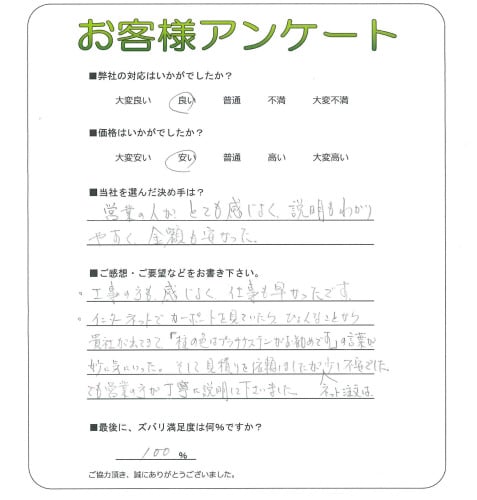 お客様アンケート
■弊社の対応はいかがでしたか？
大変良い 良い 普通 不満 大変不満
■価格はいかがでしたか？
大変安い 安い 普通 高い 大変高い
■当社を選んだ決め手は？
営業の人が、とても感じよく、説明もわかり
やすく、金額も安かった。
■ご感想・ご要望などをお書き下さい。
・工事の方も、感じよく、仕事も早かったです。
・インターネットでカーポートを見ていたら、ひょんなことから
貴社が出てきて「柱の色はプラチナステンがお勧めです」の言葉が
妙に気にいった。そして見積りを依頼しましたが少し不安でした。
でも営業の方が丁寧に説明して下さいました。 ネット注文は、
■最後に、ズバリ満足度は何%ですか？
100 %
ご協力頂き、誠にありがとうございました。